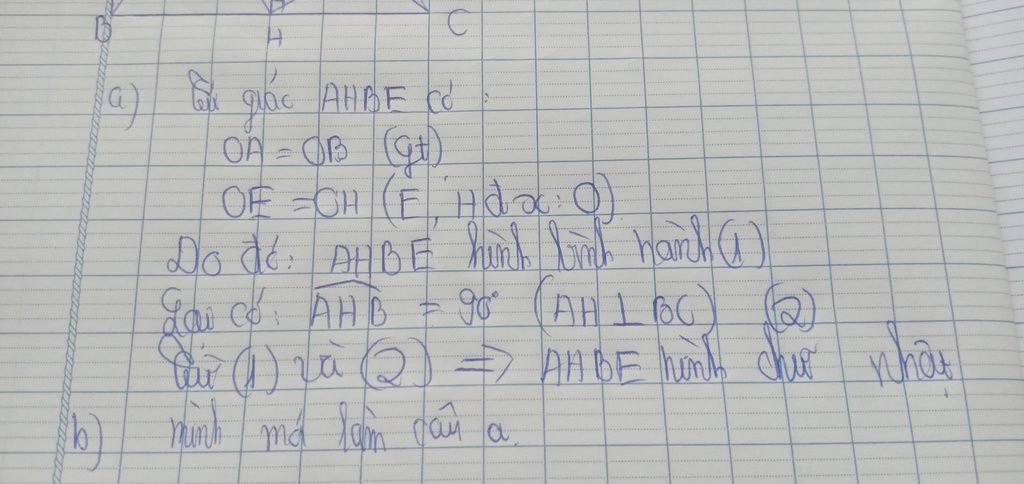 B H C
a) Tứ giác AHBE có :
OA = OB (gt)
OE = OH (E, H đ x : O)
Do đó : AHBE hình bình hành (1)
Lại có : AHB = 90° (AH ⊥ BC) (2)
Từ (1) và (2) => AHBE hình chữ nhật
b) mình mới làm câu a.